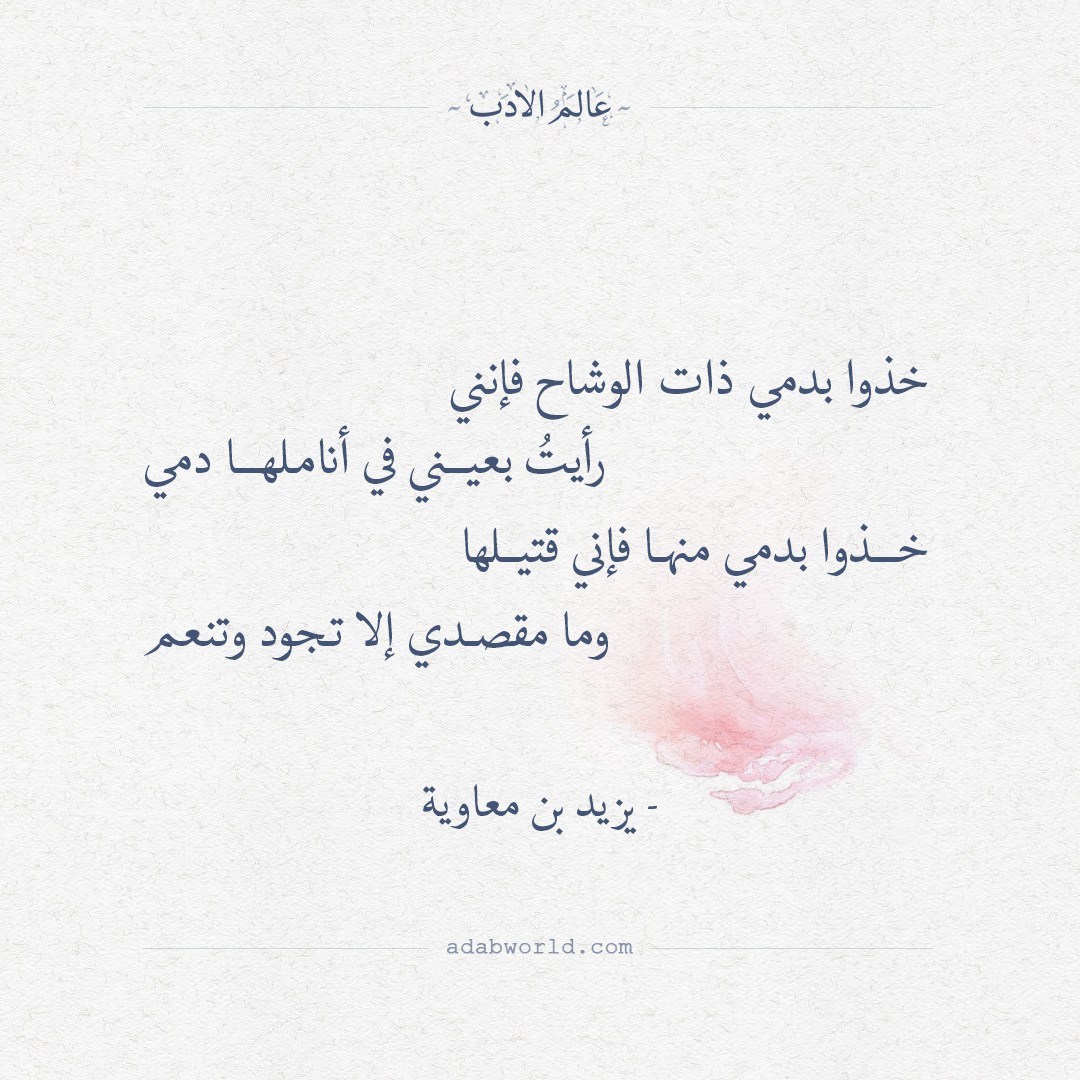 ~ عَالَمُ الادَب ~
خذوا بدمي ذات الوشاح فإنني
رأيتُ بعيـــني في أناملهـــا دمي
خـــذوا بدمي منهـا فإني قتيـلها
وما مقصـدي إلا تـجود وتنعـم
- يزيد بن معاوية
adabworld.com